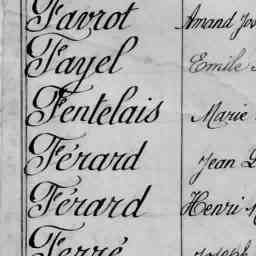 Favrot Amand
Fayel Emile
Fentelais Marie
Férard Jean
Férard Henri
Ferré Joseph